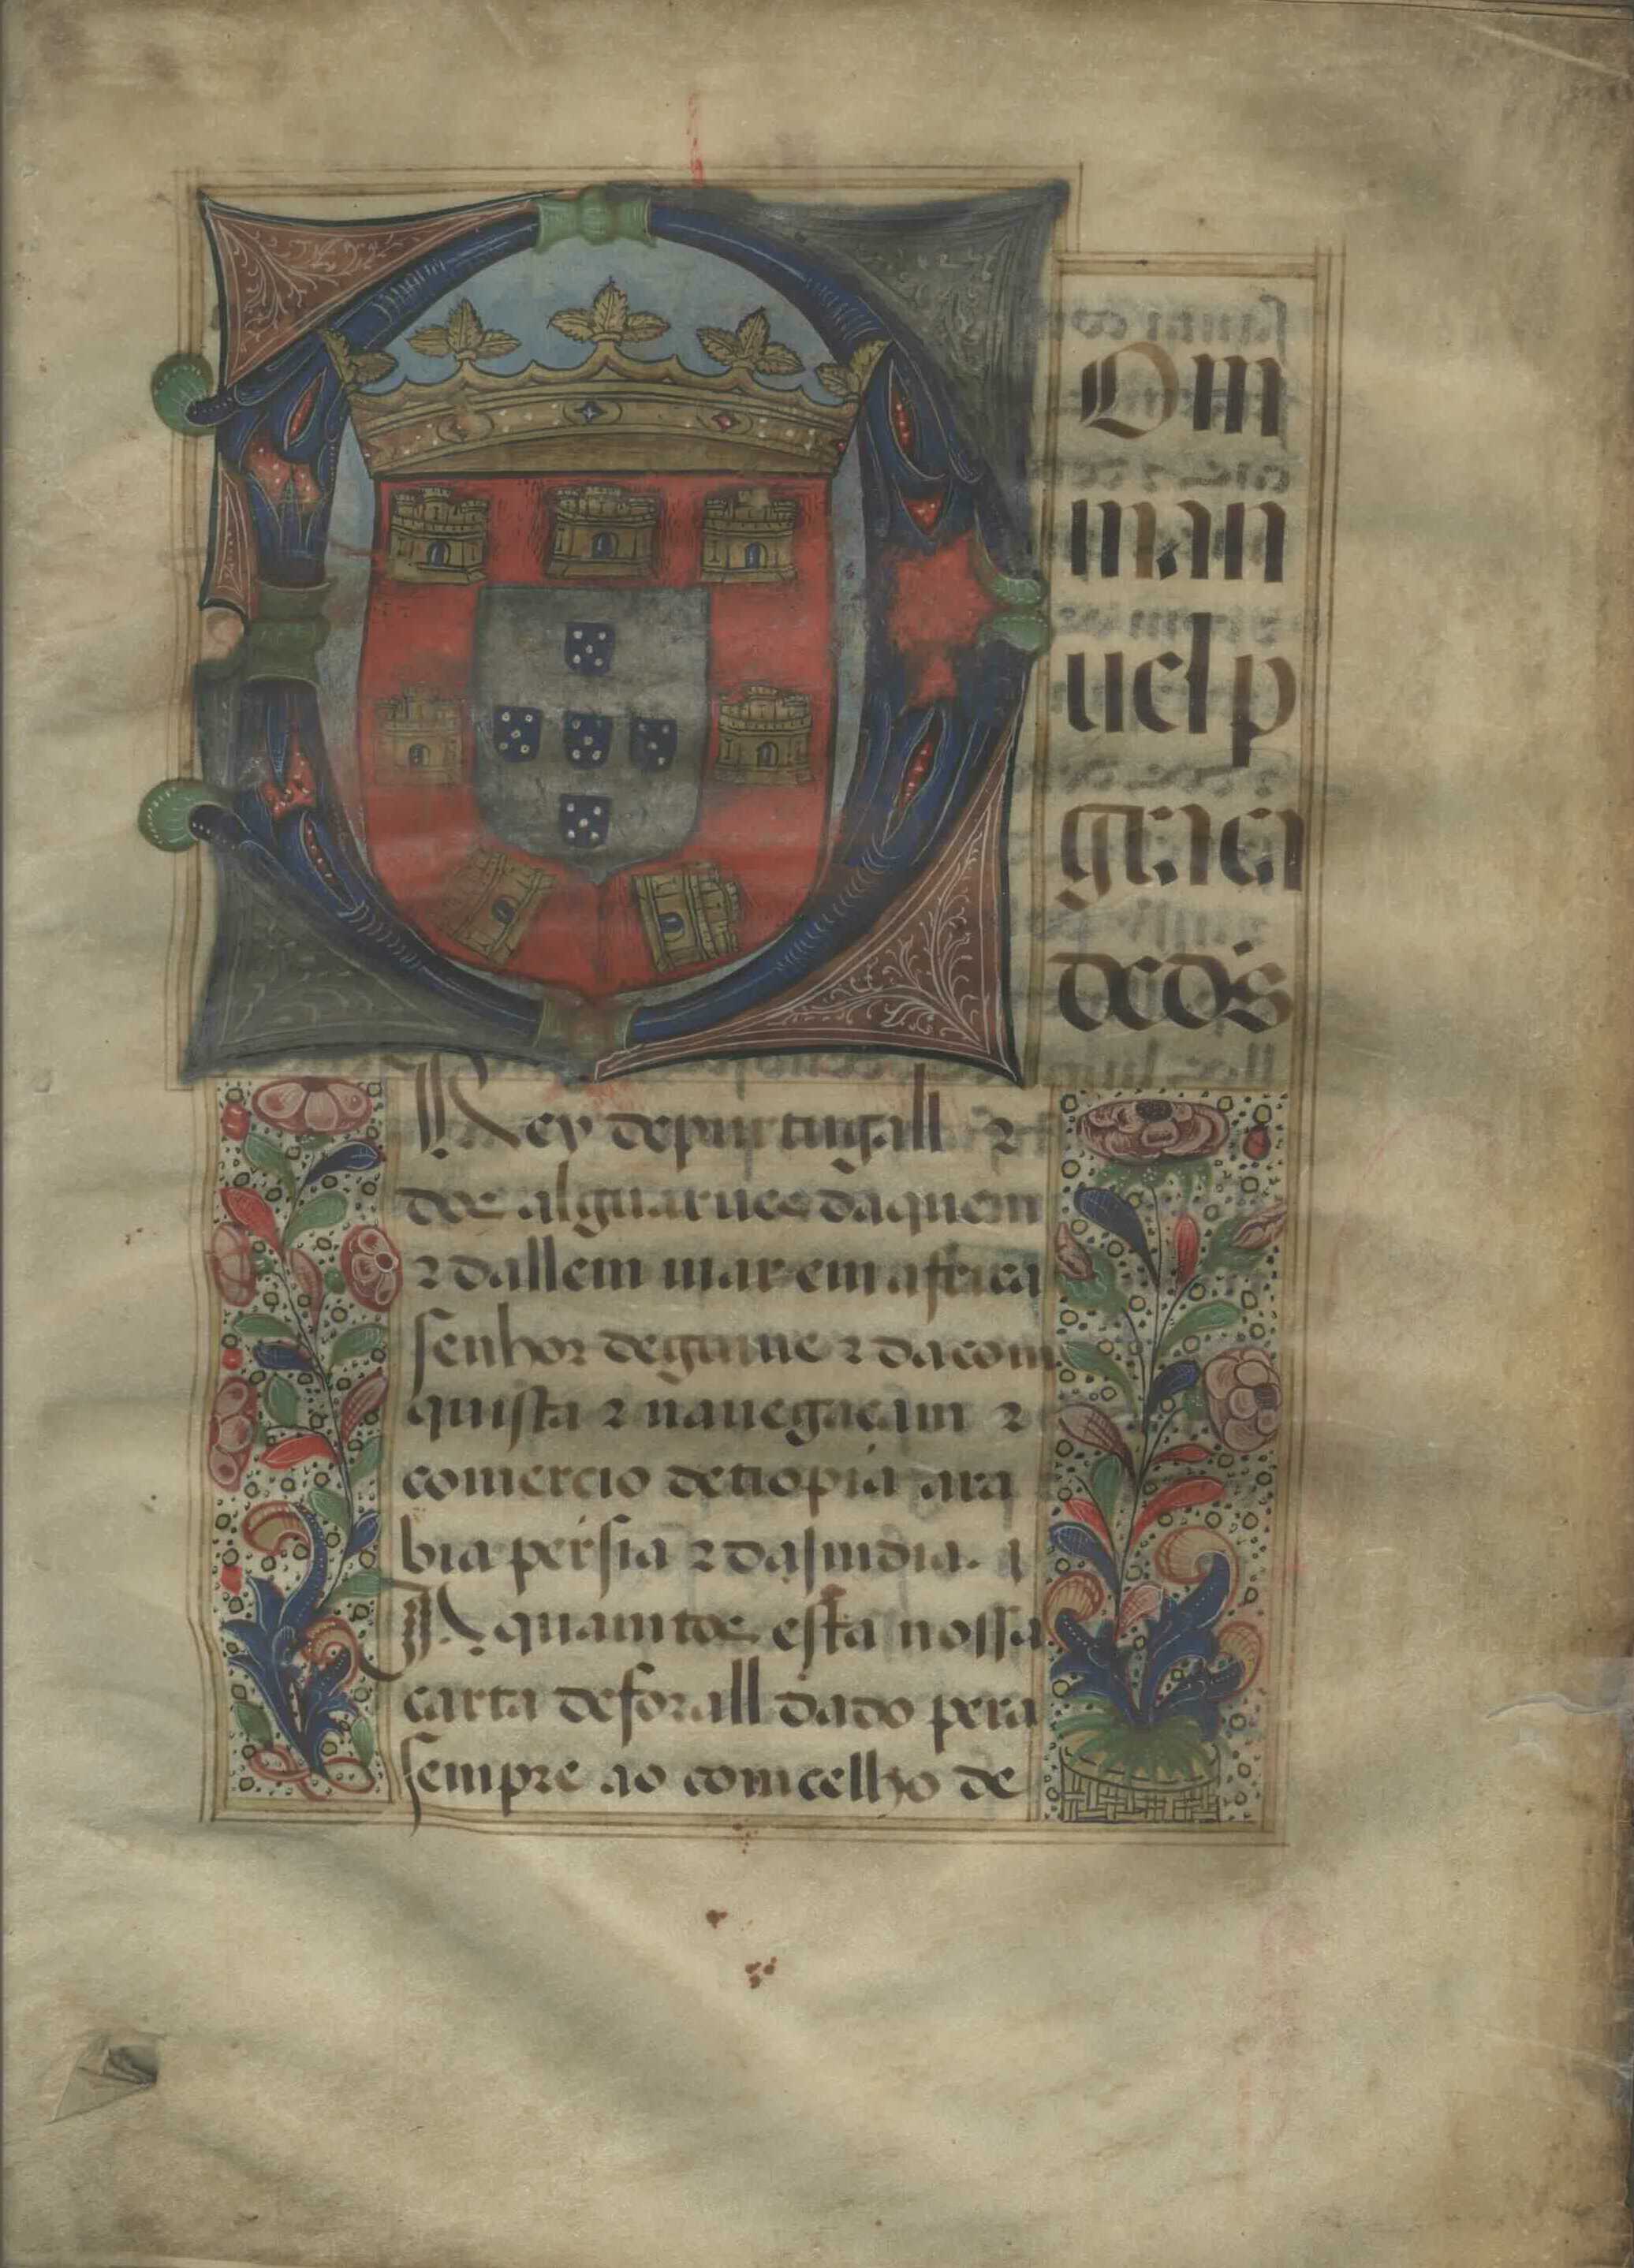 D
om
man
uel p
graça
de d's
Rey de purtugall ⁊
dos alguarues daquem
⁊ dallem mar em africa
senhor de guine ⁊ da com
quista ⁊ nauegaçam ⁊
comercio detiopia ara
bia persia ⁊ da jmdia. A
quamtos esta nossa
carta de forall dado pera
sempre ao comcelho de